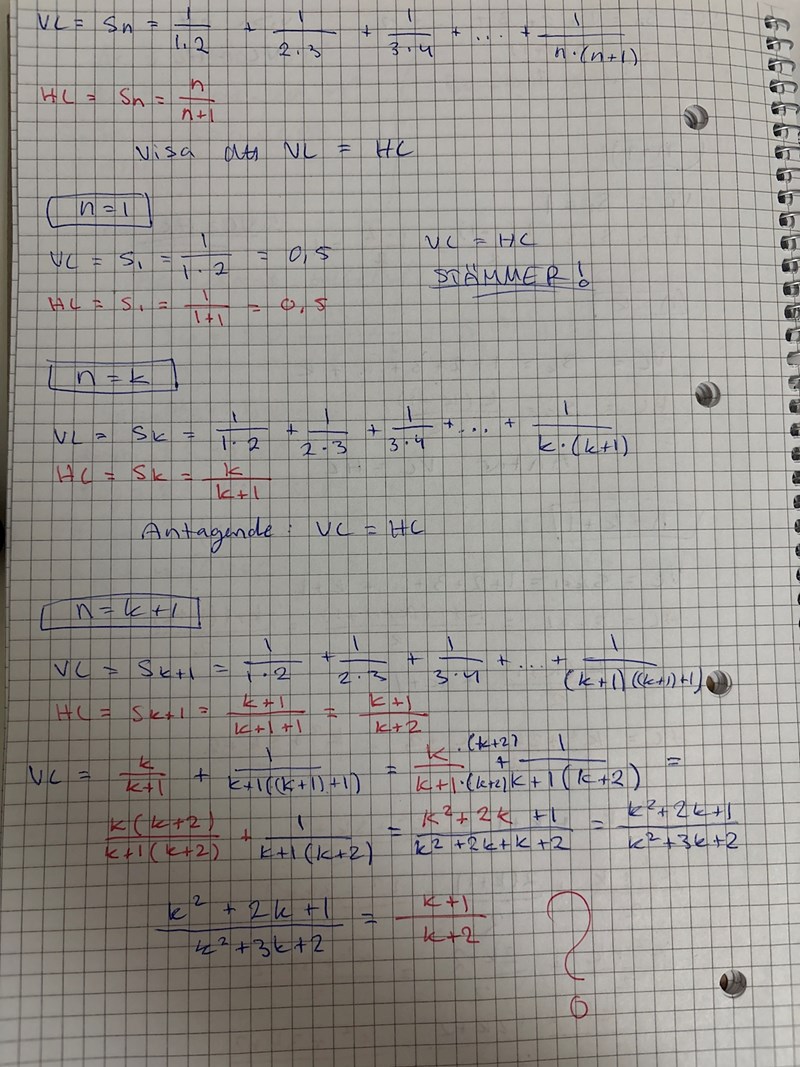 VL = Sn = 1/1·2 + 1/2·3 + 1/3·4 + ... + 1/n·(n+1)
HL = Sn = n/n+1
Visa att VL = HL
n=1
VL = S1 = 1/1·2 = 0,5 VL = HL
HL = S1 = 1/1+1 = 0,5 STÄMMER!
n=k
VL = Sk = 1/1·2 + 1/2·3 + 1/3·4 + ... + 1/k·(k+1)
HL = Sk = k/k+1
Antagende: VL = HL
n=k+1
VL = Sk+1 = 1/1·2 + 1/2·3 + 1/3·4 + ... + 1/(k+1)((k+1)+1)
HL = Sk+1 = k+1/k+1+1 = k+1/k+2
VL = k/k+1 + 1/k+1((k+1)+1) = k·(k+2)/k+1·(k+2) + 1/k+1(k+2) =
k(k+2)/k+1(k+2) + 1/k+1(k+2) = k²+2k+1/k²+2k+k+2 = k²+2k+1/k²+3k+2
k²+2k+1/k²+3k+2 = k+1/k+2 ?